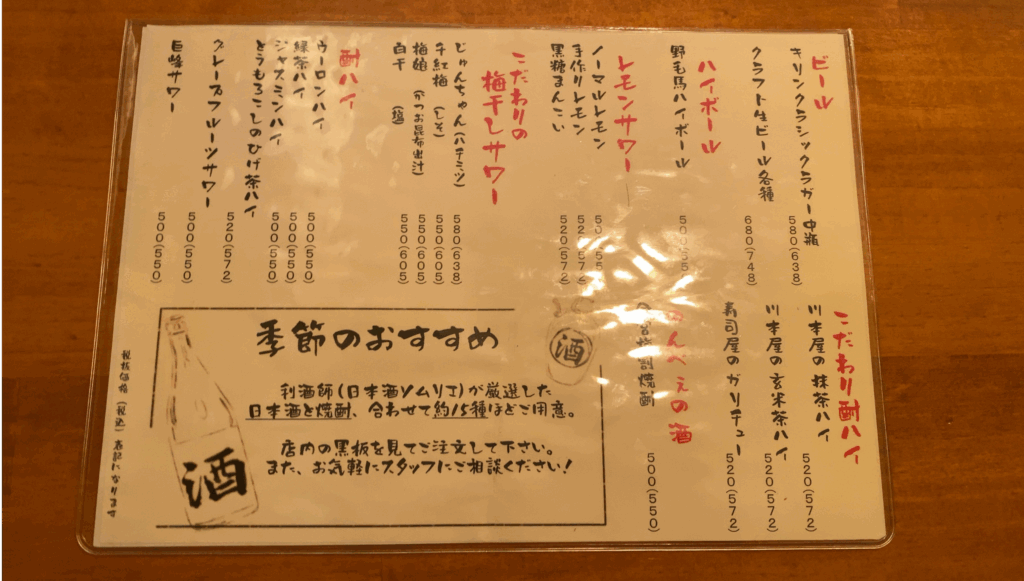 ビール
キリンクラシックラガー中瓶 580(638)
クラフト生ビール各種 680(748)
ハイボール
野毛馬ハイボール
レモンサワー
ノーマルレモン
手作りレモン 520(572)
黒糖まんこい 520(572)
こだわりの
梅干しサワー
じゅんちゅん(ハチミツ) 580(638)
千紅梅(しそ) 550(605)
梅娘(かつお昆布出汁) 550(605)
白干(塩) 550(605)
酎ハイ
ウーロンハイ 500(550)
緑茶ハイ 500(550)
ジャスミンハイ 500(550)
とうもろこしのひげ茶ハイ
グレープフルーツサワー 520(572)
巨峰サワー 500(550)
500(550)
こだわり酎ハイ
川本屋の抹茶ハイ 520(572)
川本屋の玄米茶ハイ 520(572)
寿司屋のガリチュー 520(572)
んべえの酒
割焼酎 500(550)
季節のおすすめ
利酒師(日本酒ソムリエ)が厳選した
日本酒と焼酎、合わせて約15種ほどご用意。
店内の黒板を見てご注文して下さい。
また、お気軽にスタッフにご相談ください!
酒
酒
税抜価格(税込)表記になります